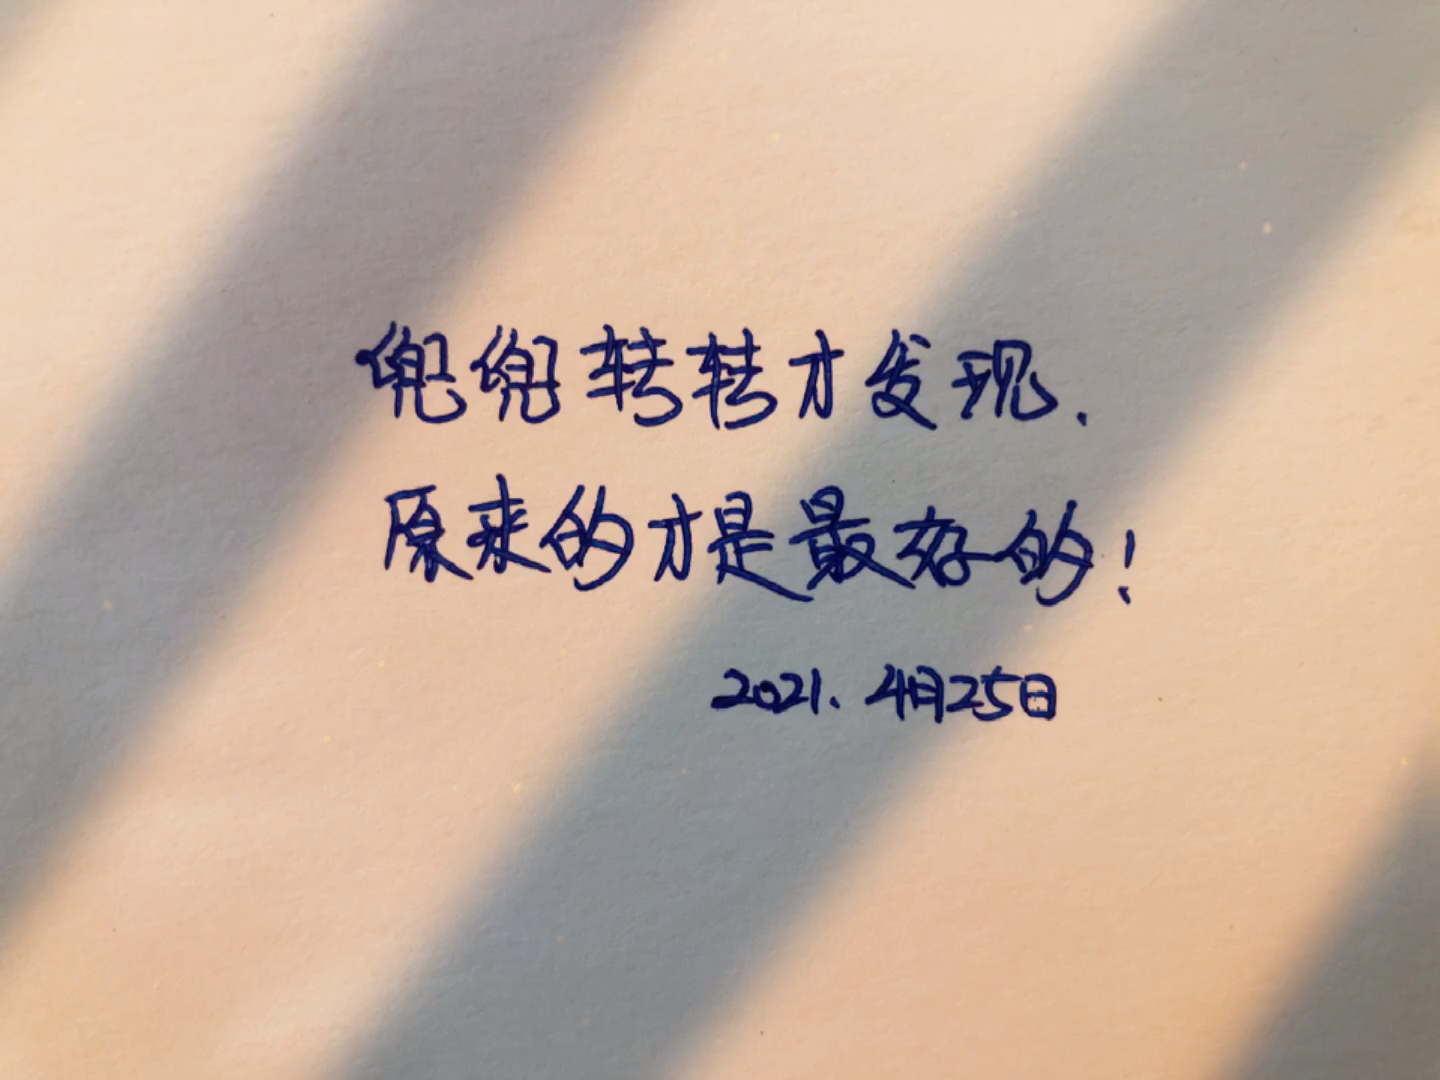 兜兜转转才发现.
原来的才是最好的!
2021. 4月25日